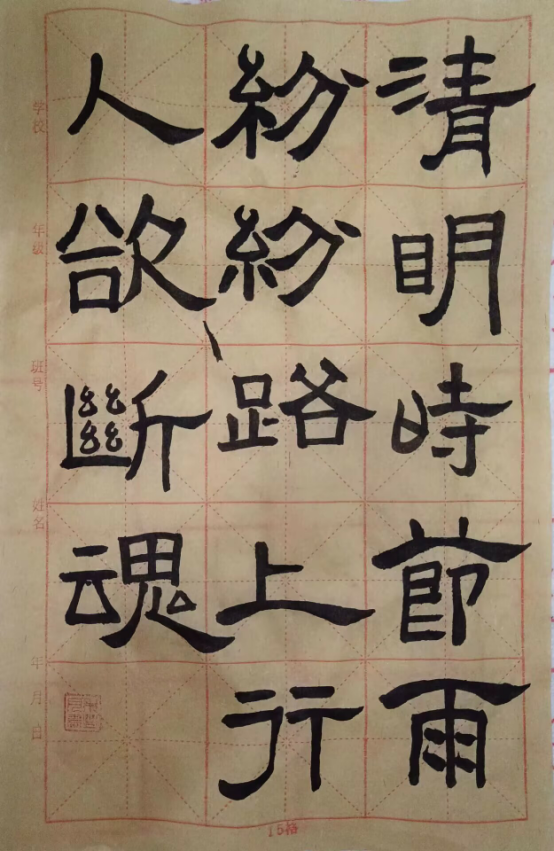 清明時節雨
紛紛路上行
人欲斷魂
学校
年级
班号
姓名
年 月 日
15格